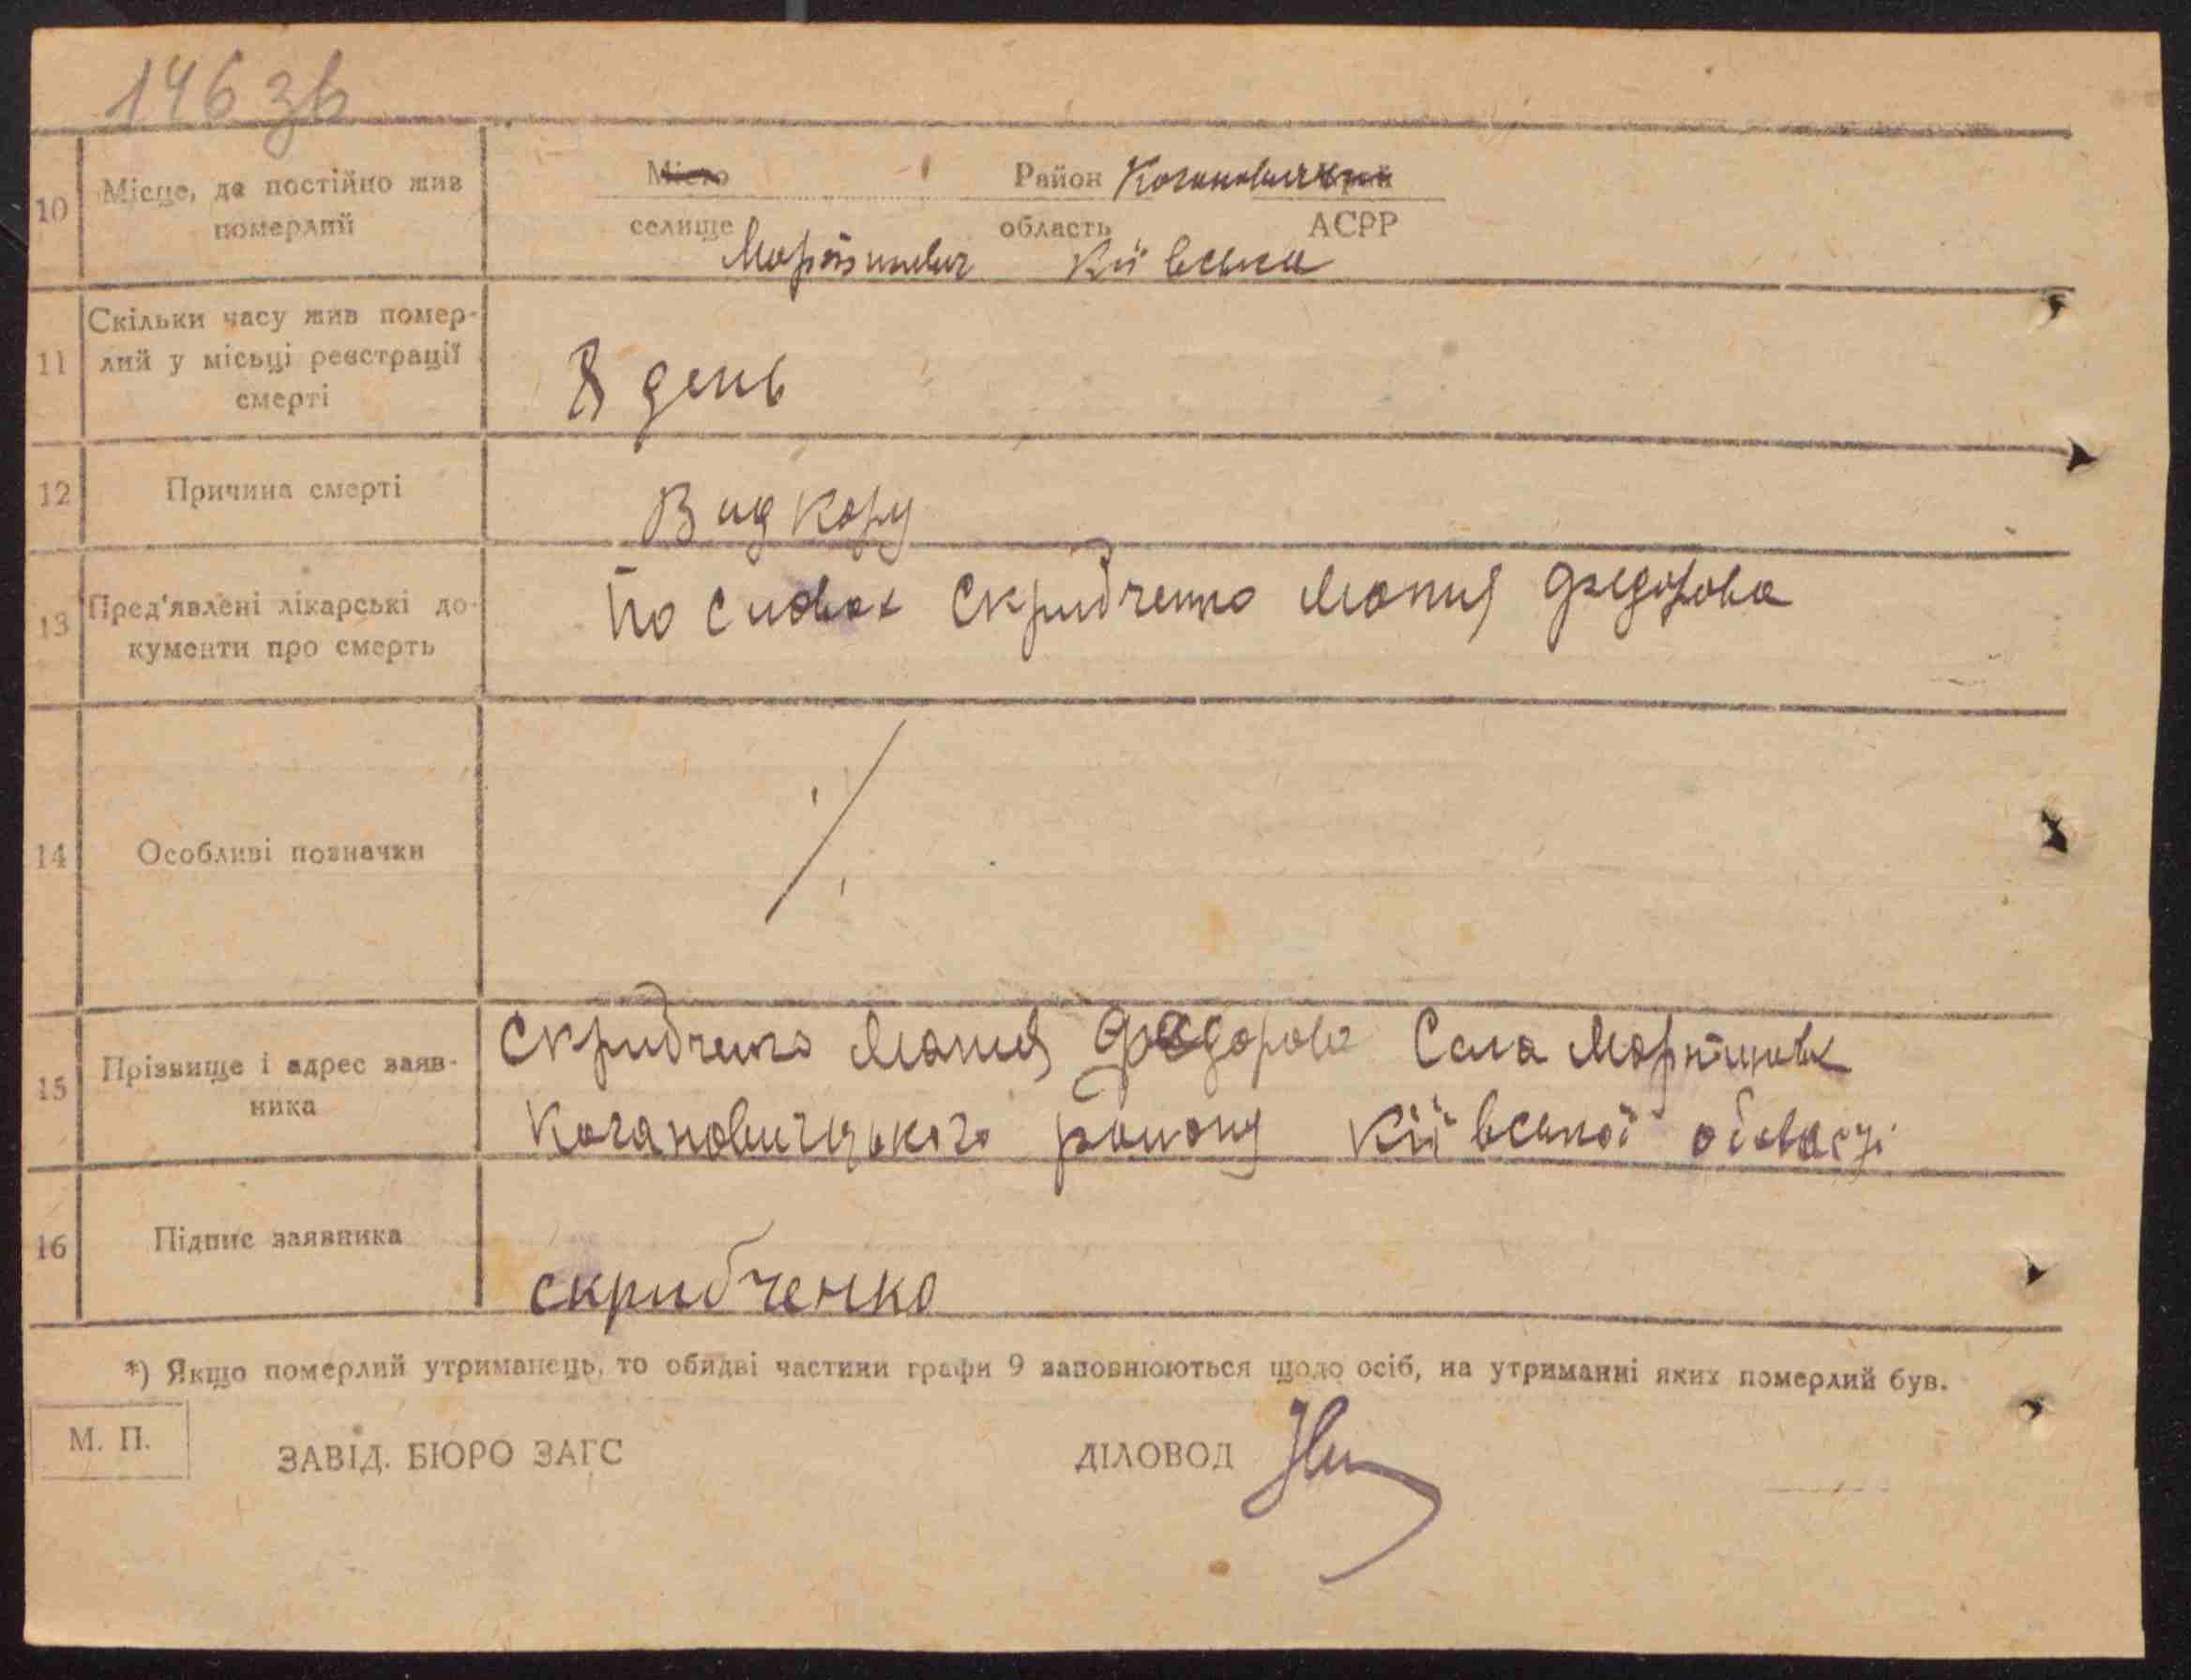 146 зв
10 Місце, де постійно жив померлий
Місто Район Кагановичський край
селище область АСРР
Мартинович Київська
11 Скільки часу жив помер-
лий у місьці реєстрації
смерті
8 день
12 Причина смерті
Вид кору
13 Пред'явлені лікарські до-
кументи про смерть
По словах Скрибченко Мания Федорова
14 Особливі позначки
15 Прізвище і адрес заяв-
ника
Скрибченко Мания Федорова Села
Кагановичцького району Київської області
16 Підпис заявника
скрибченко
*) Якщо померлий утриманець, то обидві частини графи 9 заповнюються щодо осіб, на утриманні яких померлий був.
М. П.
ЗАВІД. БЮРО ЗАГС ДІЛОВОД